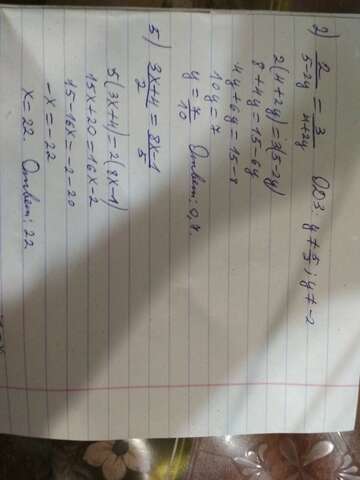 2) 2/(5-2y) = 3/(4+2y) ОДЗ: y≠5/2; y≠-2
2(4+2y)=3(5-2y)
8+4y=15-6y
4y+6y=15-8
10y=7
y=7/10 Ответ: 0,7.
5) (3x+4)/2 = (8x-1)/5
5(3x+4)=2(8x-1)
15x+20=16x-2
15-16x=-2-20
-x=-22
x=22. Ответ: 22